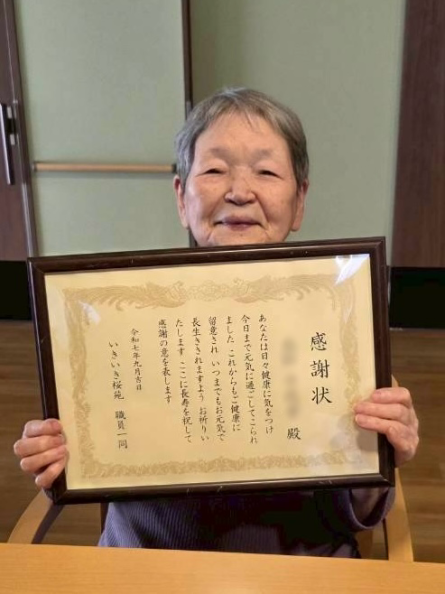 感謝状
殿
あなたは日々健康に気をつけ
今日まで元気に過ごしてこられ
ました これからもご健康に
留意され いつまでもお元気で
長生きされますよう お祈りい
たします ここに長寿を祝して
感謝の意を表します
令和七年九月吉日
いきいき桜苑 職員一同